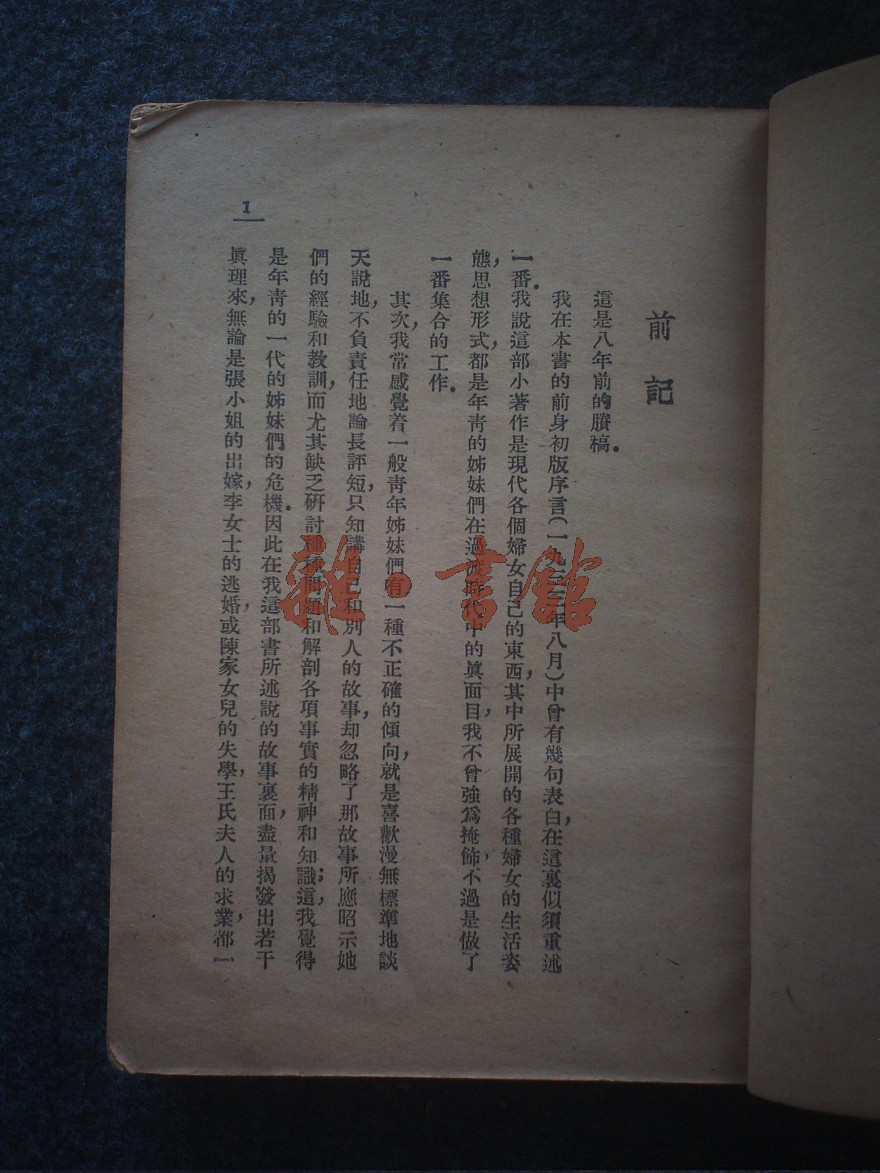 前記
這是八年前的賸稿。
我在本書的前身初版序言(一九三三年八月)中曾有幾句表白,在這裏似須重述
一番。我說這部小著作是現代各個婦女自己的東西,其中所展開的各種婦女的生活姿
態,思想形式,都是年青的姊妹們在過渡時代中的眞面目,我不曾強爲掩飾,不過是做了
一番集合的工作。
其次,我常感覺着一般靑年姊妹們有一種不正確的傾向,就是喜歡漫無標準地談
天說地,不負責任地論長評短,只知講自己和別人的故事,却忽略了那故事所應昭示她
們的經驗和敎訓,而尤其缺乏硏討種種問題和解剖各項事實的精神和知識;這,我覺得
是年靑的一代的姊妹們的危機。因此在我這部書所述說的故事裏面,盡量揭發出若干
眞理來,無論是張小姐的出嫁,李女士的逃婚,或陳家女兒的失學,王氏夫人的求業,都一
1
雜·書館